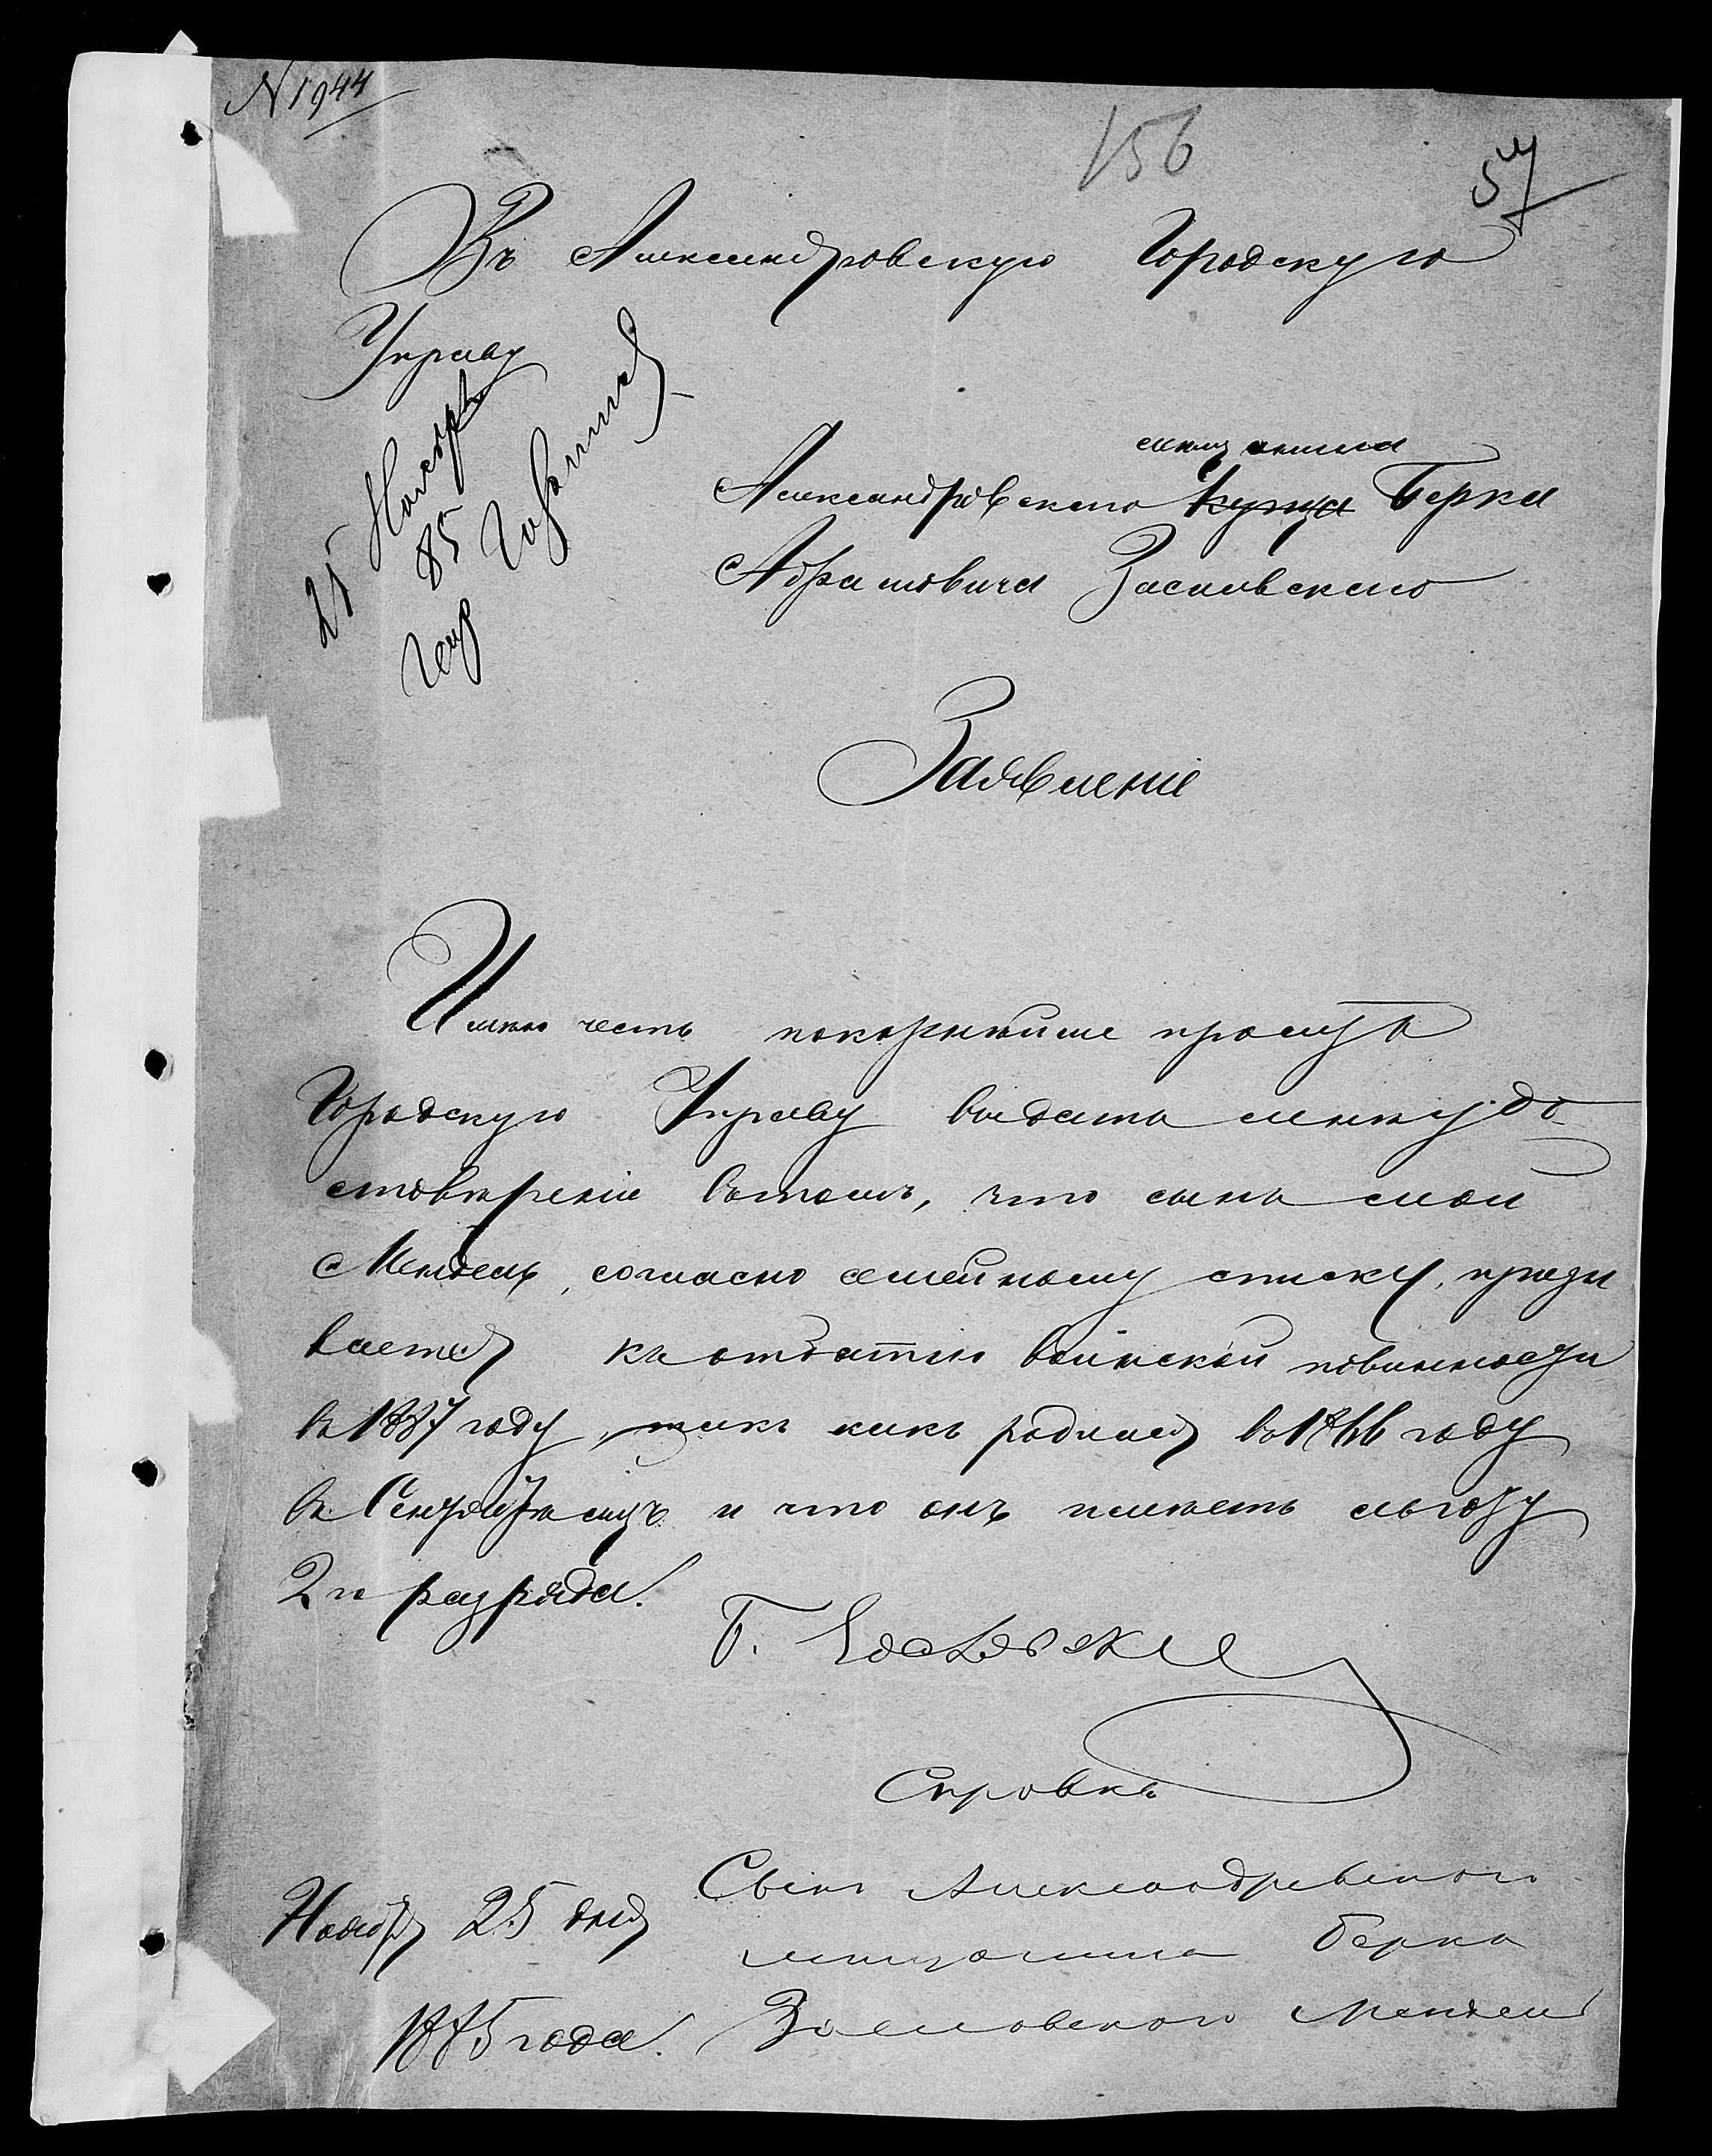 N 1944
156
57
Въ Александровскую Городскую
Управу
25 Ноября
85
мѣщанина
Александровскаго купца Берка
Абрамовича Заславскаго
Заявленіе
Имѣю честь покорнѣйше просить
Городскую Управу выдать мнѣ удо-
стовѣреніе вътомъ, что сынъ мой
Мендель, согласно семейному списку, призы
вается къ отбытію воинской повинности
въ 1887 году, такъ какъ родился въ 1866 году
въ Сентябрѣ мцѣ и что онъ имѣетъ льготу
2го разряда.
Б. Заславскій
Справка
Ноября 25 дня
1885 года.
Сынъ Александровскаго
мѣщанина Берка
Заславскаго Мендель